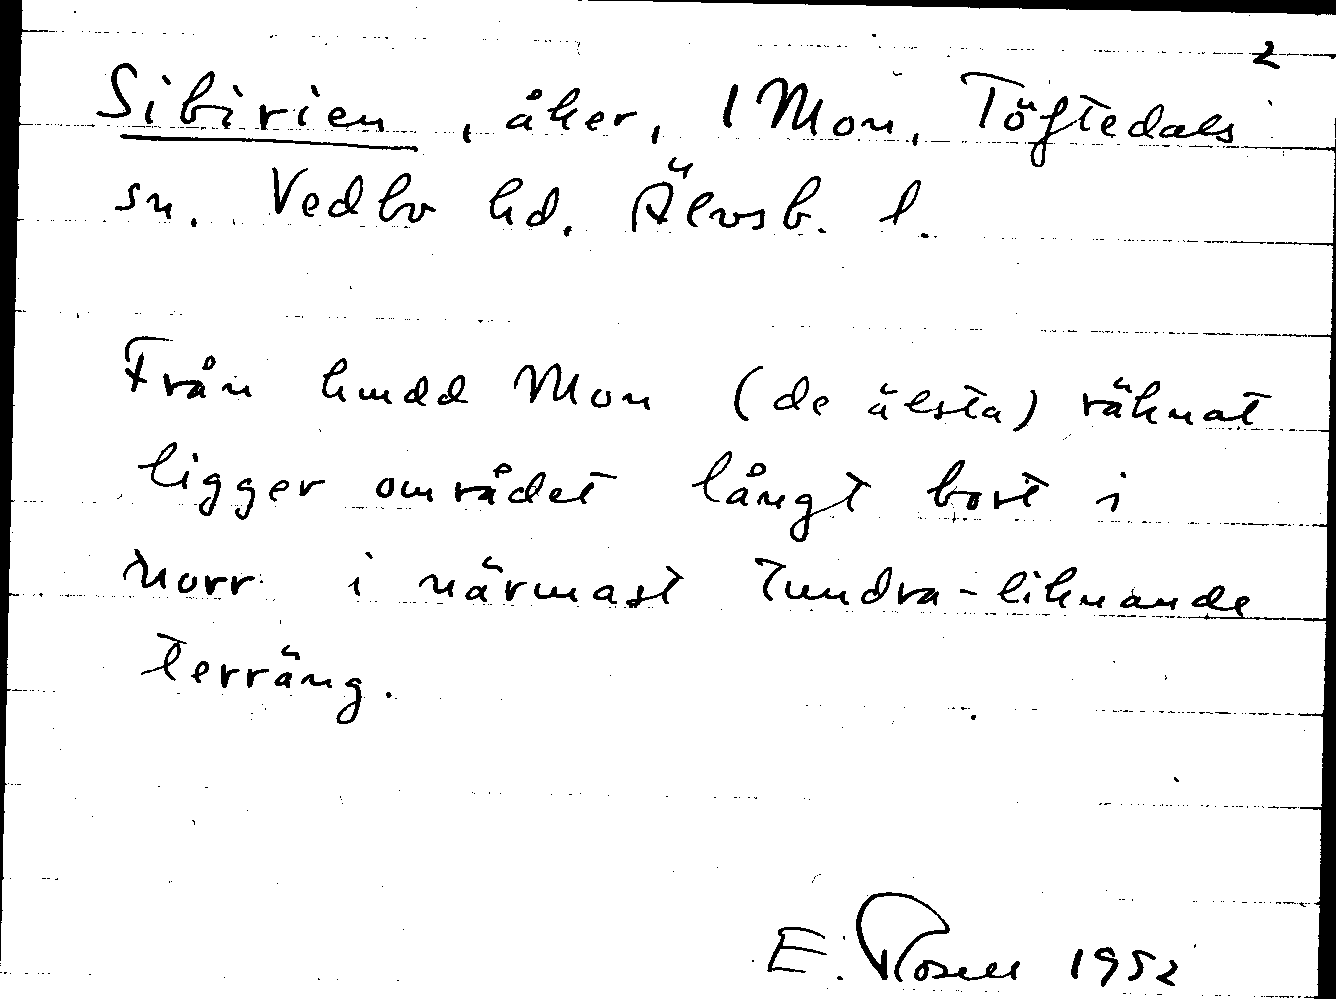 2
Sibirien, åker, 1 Mon, Töftedals
sn. Vedbo hd. Älvsb. l.
Från hmdd Mon (de älsta) räknat
ligger området långt bort i
norr i närmast tundra-liknande
terräng.
E. Rosell 1952